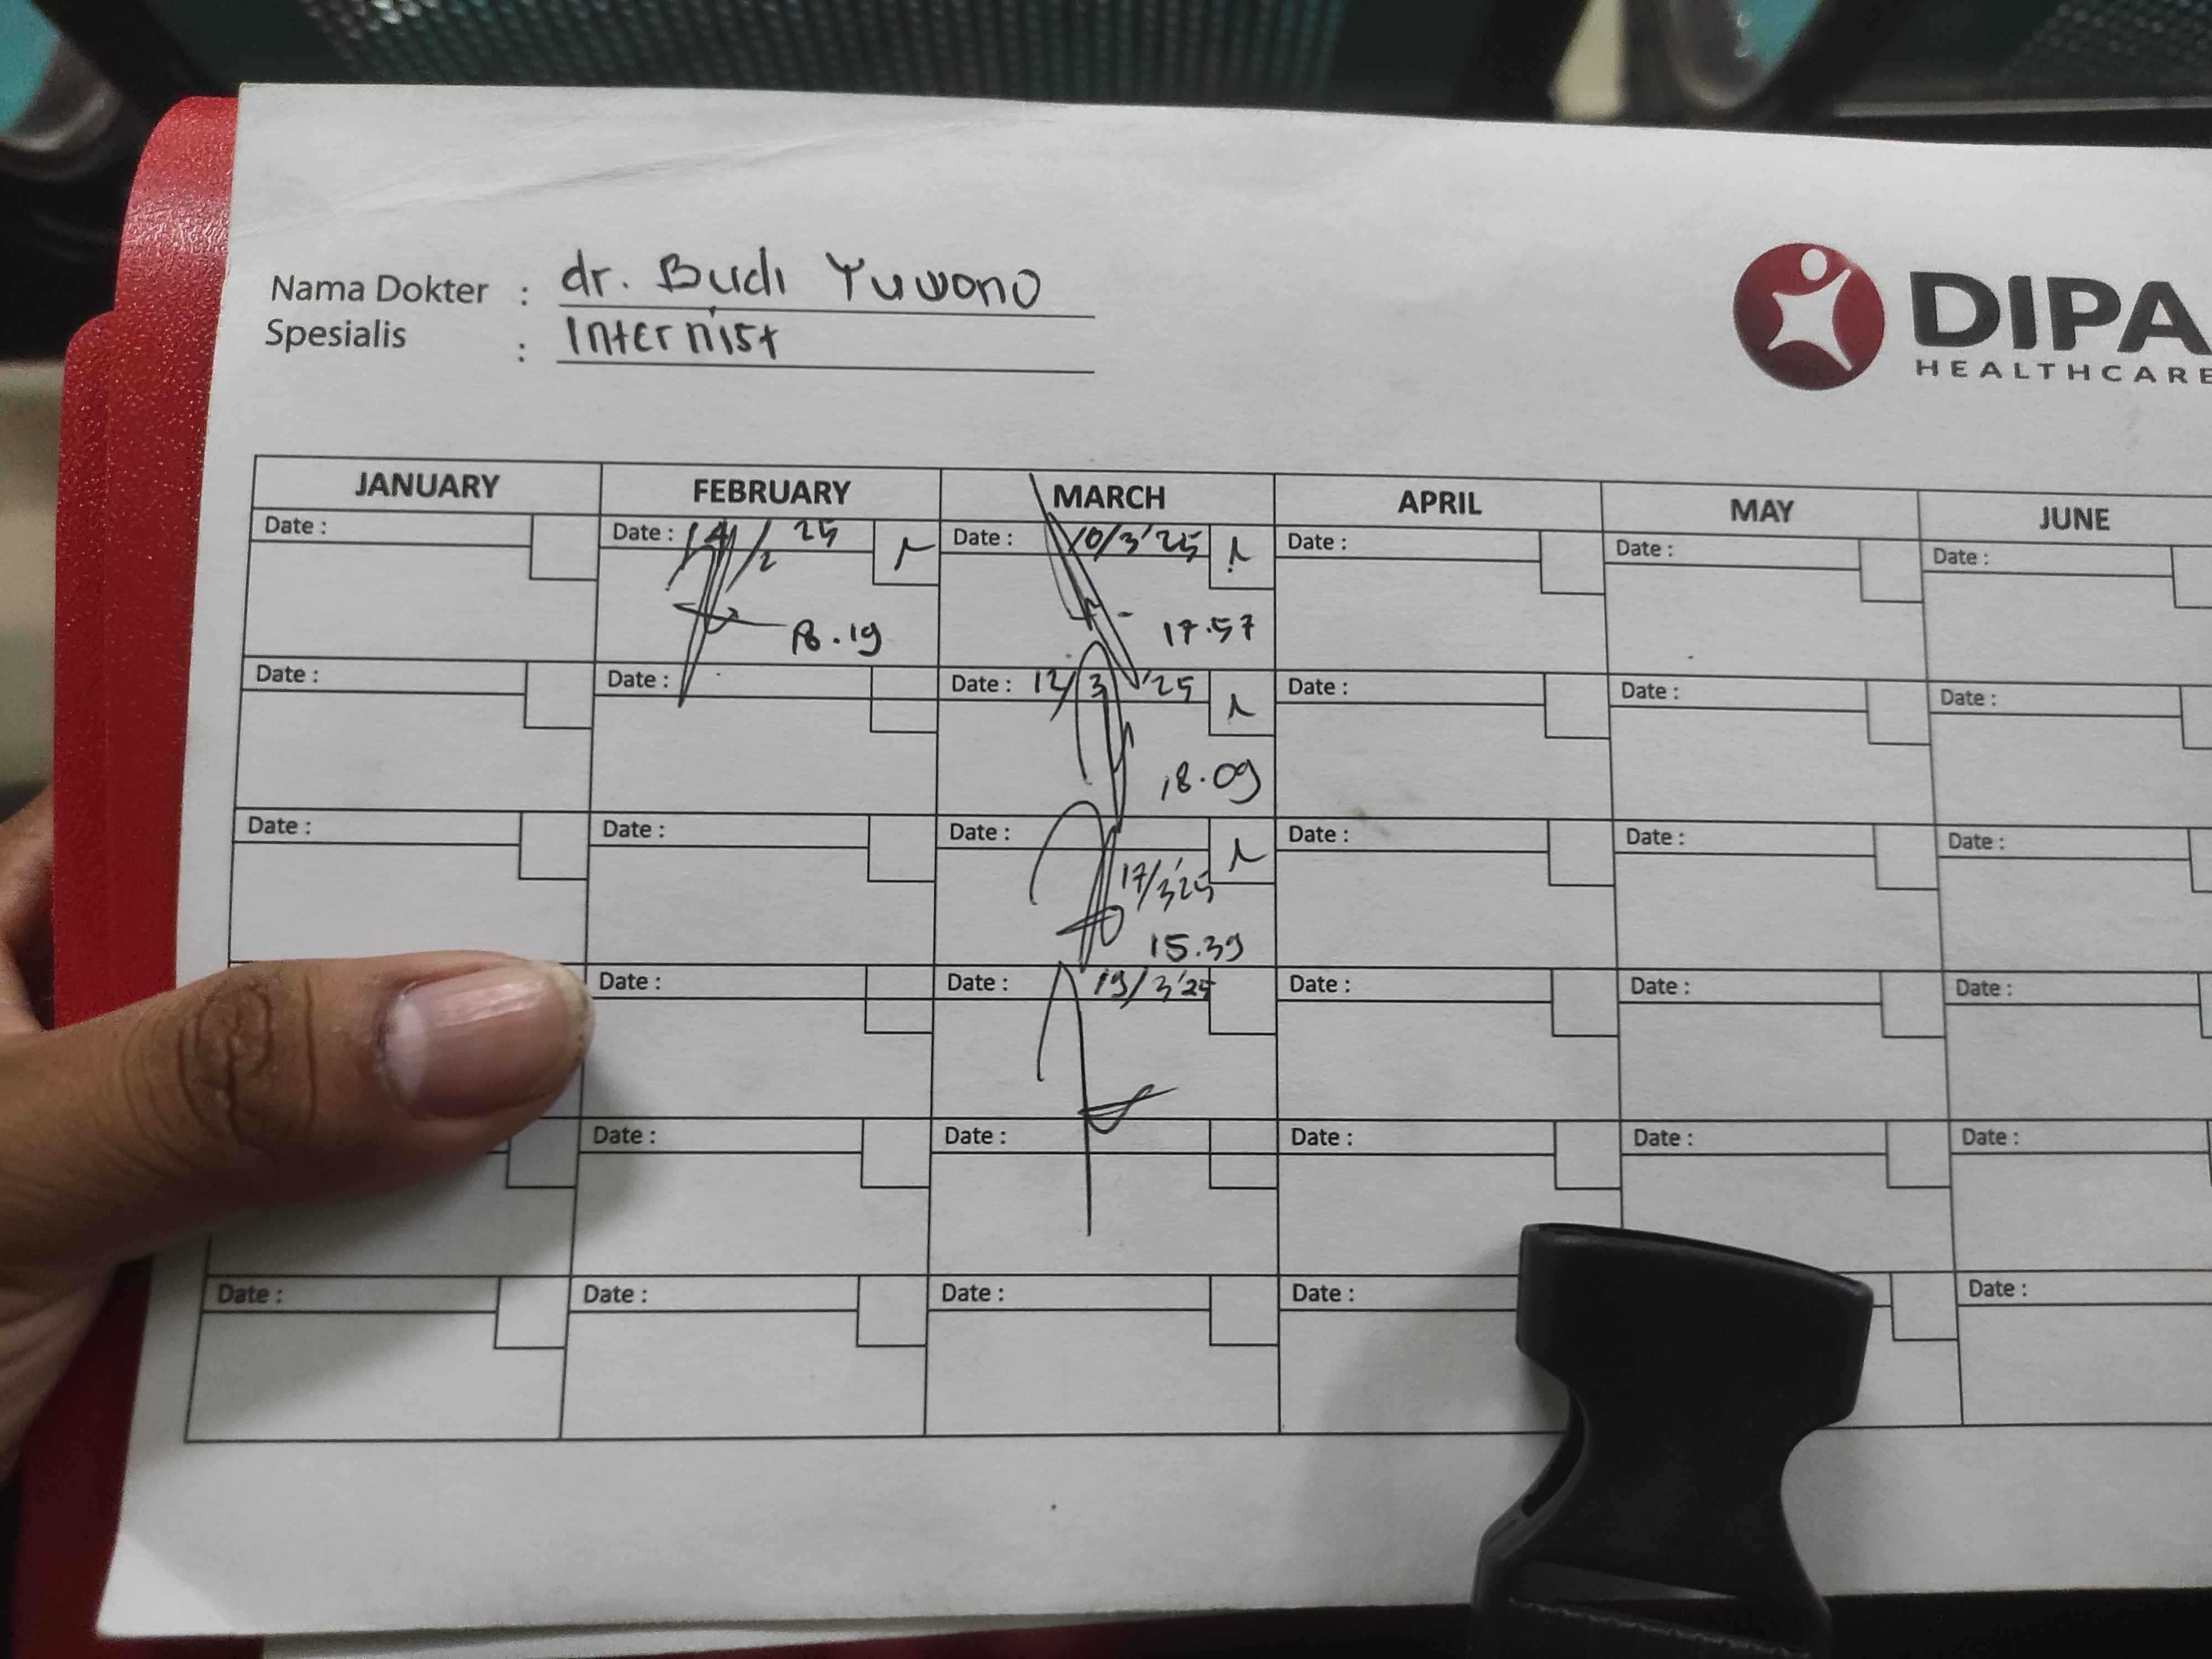 Nama Dokter : dr. Budi Yuwono
Spesialis : Internist
DIPA
HEALTHCARE
JANUARY FEBRUARY MARCH APRIL MAY JUNE
Date : Date : 14/2 25 Date : 10/3'25 Date : Date : Date :
17.57
Date : Date : Date : 12/3 '25 Date : Date : Date :
18.09
Date : Date : Date : Date : Date : Date :
17/3'25
15.39
Date : Date : 19/3'25 Date : Date : Date :
Date : Date : Date : Date : Date :
Date : Date : Date : Date : Date :